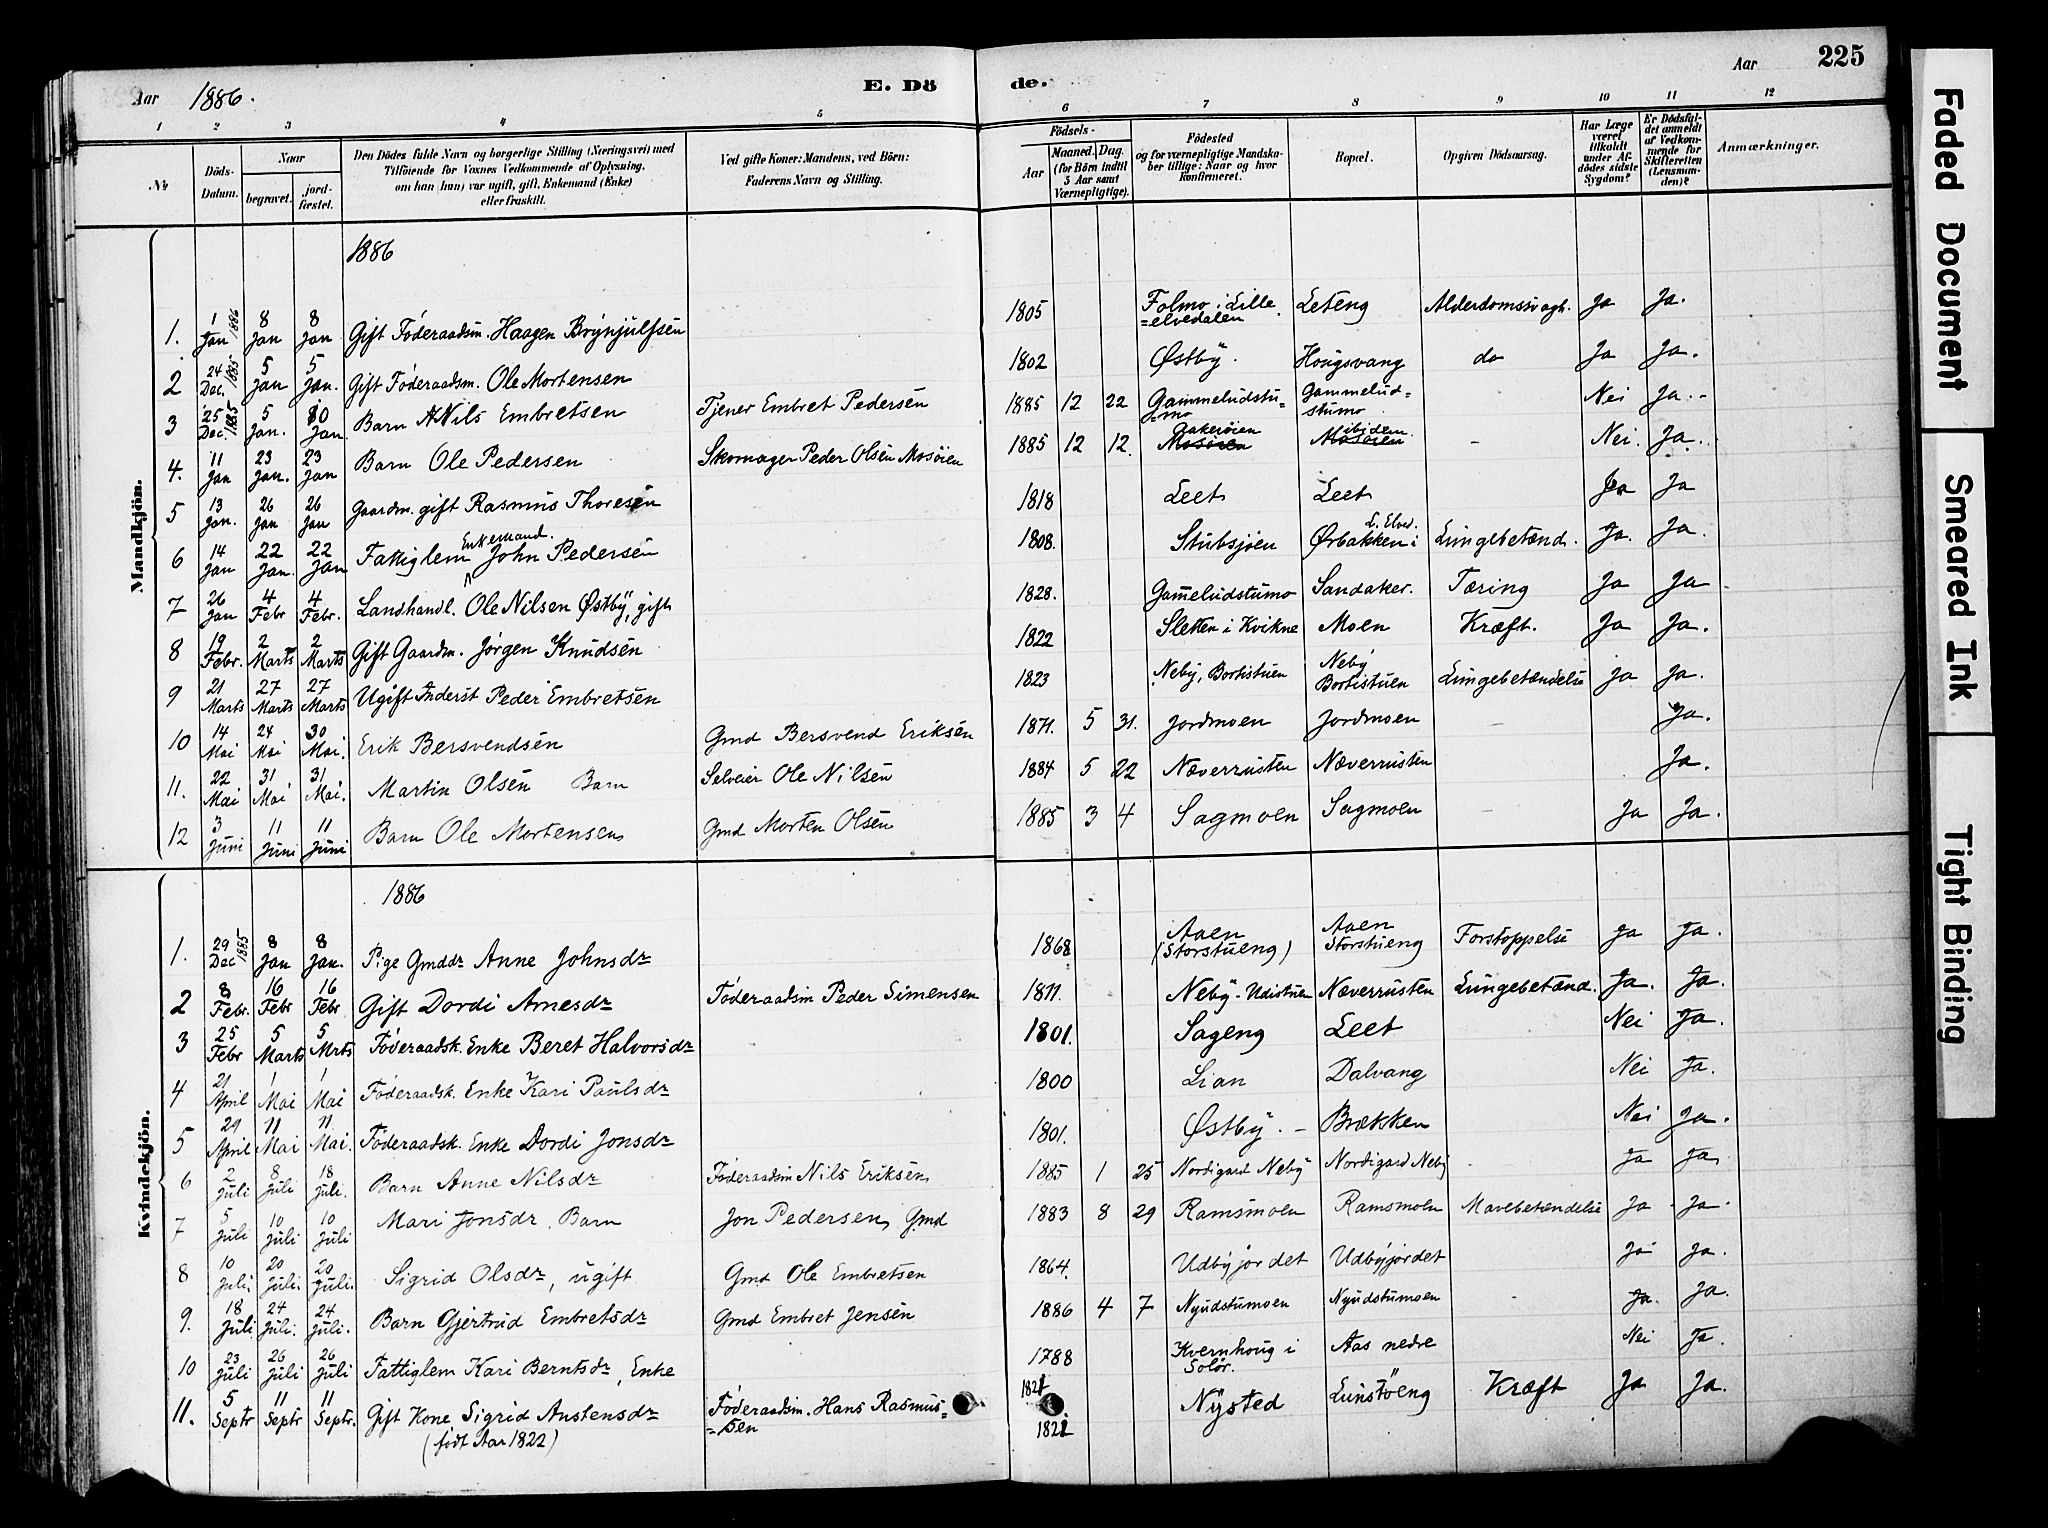 Aar 1886.
E. Dö de.
Aar 225
1 2 3 4 5 6 7 8 9 10 11 12
No
Döds-Datum.
Naar begravet. jordfæstet.
Den Dödes fulde Navn og borgerlige Stilling (Næringsvei) med Tilföiende for Voxnes Vedkommende af Oplysning, om han (hun) var ugift, gift, Enkemand (Enke) eller fraskilt.
Ved gifte Koner: Mandens, ved Börn: Faderens Navn og Stilling.
Födsels- Aar Maaned. Dag. (for Börn indtil 5 Aar samt Værnepligtige).
Födested og for værnepligtige Mandskaber tillige: Naar og hvor konfirmeret.
Bopæl.
Opgiven Dödsaarsag.
Har Læge været tilkaldt under Afdödes sidste Sygdom?
Er Dödsfaldet anmeldt af Vedkommende for Skifteretten (Lensmanden)?
Anmærkninger.
Mandkjön.
1886
1. 1 Jan 1886 8 Jan 8 Jan Gift Föderaadsm. Haagen Brynjulfsen 1805 Folmo i Lille=elvedalen. Leteng Alderdomssvagh. Ja Ja.
2 24 Dec. 1885 5 Jan 5 Jan. Gift Föderaadsm. Ole Mortensen 1802 Østby. Hougsvang do Ja Ja.
3 25 Dec. 1885 5 Jan. 10 Jan. Barn Nils Embretsen Tjener Embret Pedersen 1885 12 22 Gammeludstu=mo Gammelud=stumo Nei Ja.
4. 11 Jan 23 Jan. 23 Jan Barn Ole Pedersen Skomager Peder Olsen Mosöien 1885 12 12. Aakeröien Mosöien ibidem Mosöien - Nei. Ja.
5 13 Jan. 26 Jan 26 Jan Gaardm. gift Rasmus Thoresen 1818 Leet Leet Ja Ja
6 14 Jan 22 Jan. 22 Jan Fattiglem Enkemand. John Pedersen 1808. Stubsjöen Ørbakken i L. Elved. Lungebetænd. Ja. Ja.
7 26 Jan 4 Febr 4 Febr. Landhandl. Ole Nilsen Østby, gift 1828. Gammeludstumo Sandaker. Tæring Ja Ja
8 19 Febr. 2 Marts 2 Marts Gift Gaardm. Jörgen Knudsen 1822 Sletten i Kvikne Moen Kræft. Ja Ja.
9 21 Marts 27 Marts 27 Marts Ugift Inderst Peder Embretsen 1823 Neby, Bortistuen Neby Bortistuen Lungebetændelse Ja Ja.
10 14 Mai 24 Mai 30 Mai. Erik Bersvendsen Gmd Bersvend Eriksen 1871. 5 31. Jordmoen Jordmoen Ja.
11. 22 Mai 31 Mai 31 Mai. Martin Olsen Barn Selveier Ole Nilsen 1884 5 22 Næverrusten Næverrusten Ja.
12 3 Juni 11 Juni 11 Juni Barn Ole Mortensen Gmd Morten Olsen 1885 3 4 Sagmoen Sagmoen - Ja Ja.
Kvindekjön.
1886
1. 29 Dec 1885 8 Jan 8 Jan. Pige Gmddr Anne Johnsdr 1868 Aaen (Storstueng) Aaen Storstueng Forstoppelse Ja Ja.
2 8 Febr. 16 Febr 16 Febr Gift Dordi Arnesdr Föderaadsm Peder Simensen 1811. Neby-Udistuen Næverrusten Lungebetænd. Ja. Ja.
3 25 Febr 5 Marts 5 Mrts Föderaadsk. Enke Beret Halvorsdr 1801. Sageng Leet Nei Ja.
4 21 April 1 Mai 1 Mai Föderaadsk. Enke Kari Paulsdr 1800 Lian Dalvang Nei Ja.
5 29 April 11 Mai 11. Mai. Föderaadsk. Enke Dordi Jonsdr 1801. Østby. - Brækken Nei Ja.
6 2 Juli 8 Juli 18 Juli. Barn Anne Nilsdr Föderaadsm Nils Eriksen 1885 1 25 Nordigard Neby Nordigard Neby - Ja Ja
7 5 Juli 10 Juli 10 Juli Mari Jonsdr, Barn Jon Pedersen, Gmd 1883 8 29 Ramsmoen Ramsmoen Mavebetændelse Ja Ja.
8 10 Juli. 20 Juli. 20 Juli. Sigrid Olsdr, ugift Gmd Ole Embretsen 1864. Udbyjordet Udbyjordet Ja Ja.
9. 18 Juli 24 Juli. 24 Juli. Barn Gjertrud Embretsdr Gmd Embret Jensen 1886 4 7 Nyudstumoen Nyudstumoen - Ja. Ja.
10 23 Juli 26 Juli 26 Juli Fattiglem Kari Berntsdr, Enke 1788 Kvernhoug i Solör. Aas nedre Nei Ja.
11. 5 Septr 11 Septr 11 Septr. Gift Kone Sigrid Austensdr (född Aar 1822) Föderaadsm. Hans Rasmus=sen 1821 Nysted Lunstöeng Kræft Ja Ja.
Faded Document
Smeared Ink
Tight Binding